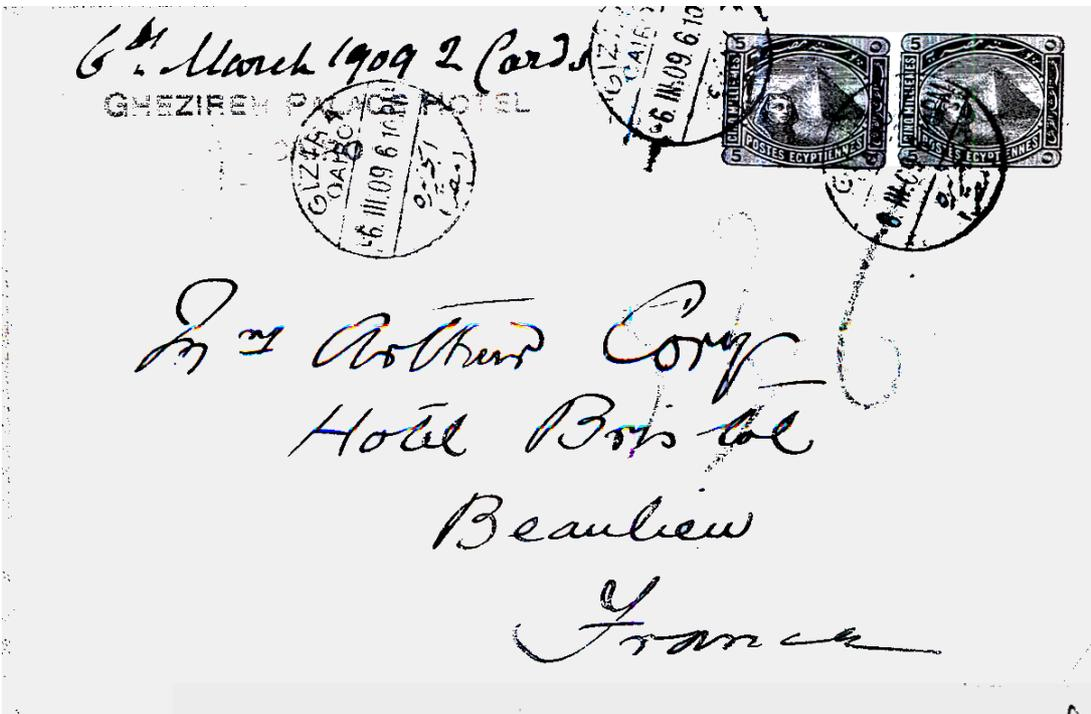 6th March 1909 2 Cards
GHEZIREH PALACE HOTEL
GIZIRA
CAIRO
-6.III.09 6 10 PM
GIZI
CAIRO
-6.III.09.6.10
5 5
CINQ MILLIEMES
POSTES EGYPTIENNES
5 ٥
CINQ MILLIEMES
POSTES EGYPTIENNES
Mrs Arthur Cory
Hotel Bristol
Beaulieu
France